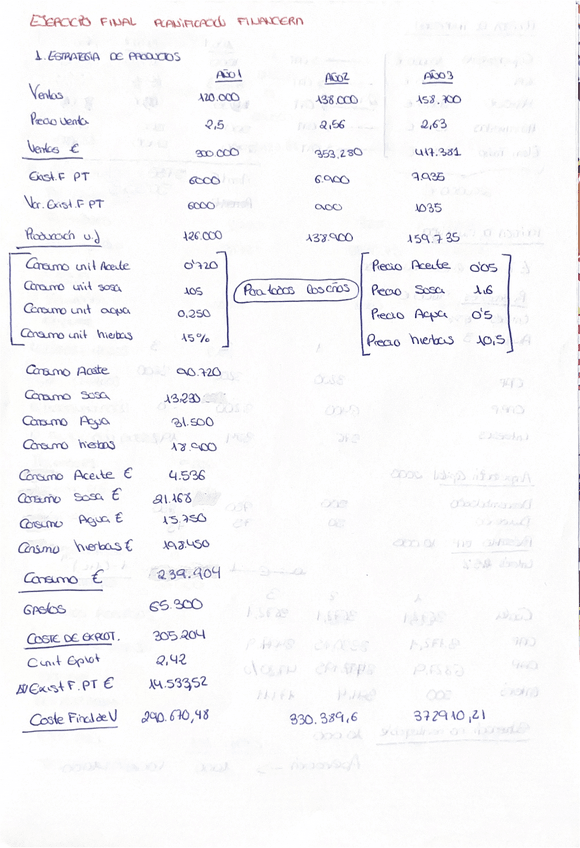 EJERCICIO FINAL PLANIFICACIÓN FINANCIERA
1. ESTRATEGIA DE PRODUCTOS
AÑO 1 AÑO 2 AÑO 3
Ventas 120.000 138.000 158.700
Precio venta 2,5 2,56 2,63
Ventas € 300.000 353.280 417.381
Exist. F PT 6000 6.900 7.935
Var. Exist. F PT 6000 900 1035
Producción uj 126.000 138.900 159.735
Consumo unit Aceite 0'720
Consumo unit sosa 105
Consumo unit agua 0,250
Consumo unit hierbas 15%
Para todos los años
Precio Aceite 0'05
Precio Sosa 1,6
Precio Agua 0'5
Precio hierbas 10,5
Consumo Aceite 90.720
Consumo Sosa 13.230
Consumo Agua 31.500
Consumo hierbas 18.900
Consumo Aceite € 4.536
Consumo Sosa € 21.168
Consumo Agua € 15.750
Consmo hierbas € 198.450
Consumo € 239.904
Gastos 65.300
COSTE DE EXPLOT. 305.204
C unit Eplot 2,42
Exist F. PT € 14.533,52
Coste Final de V 290.670,48 330.389,6 372910,21